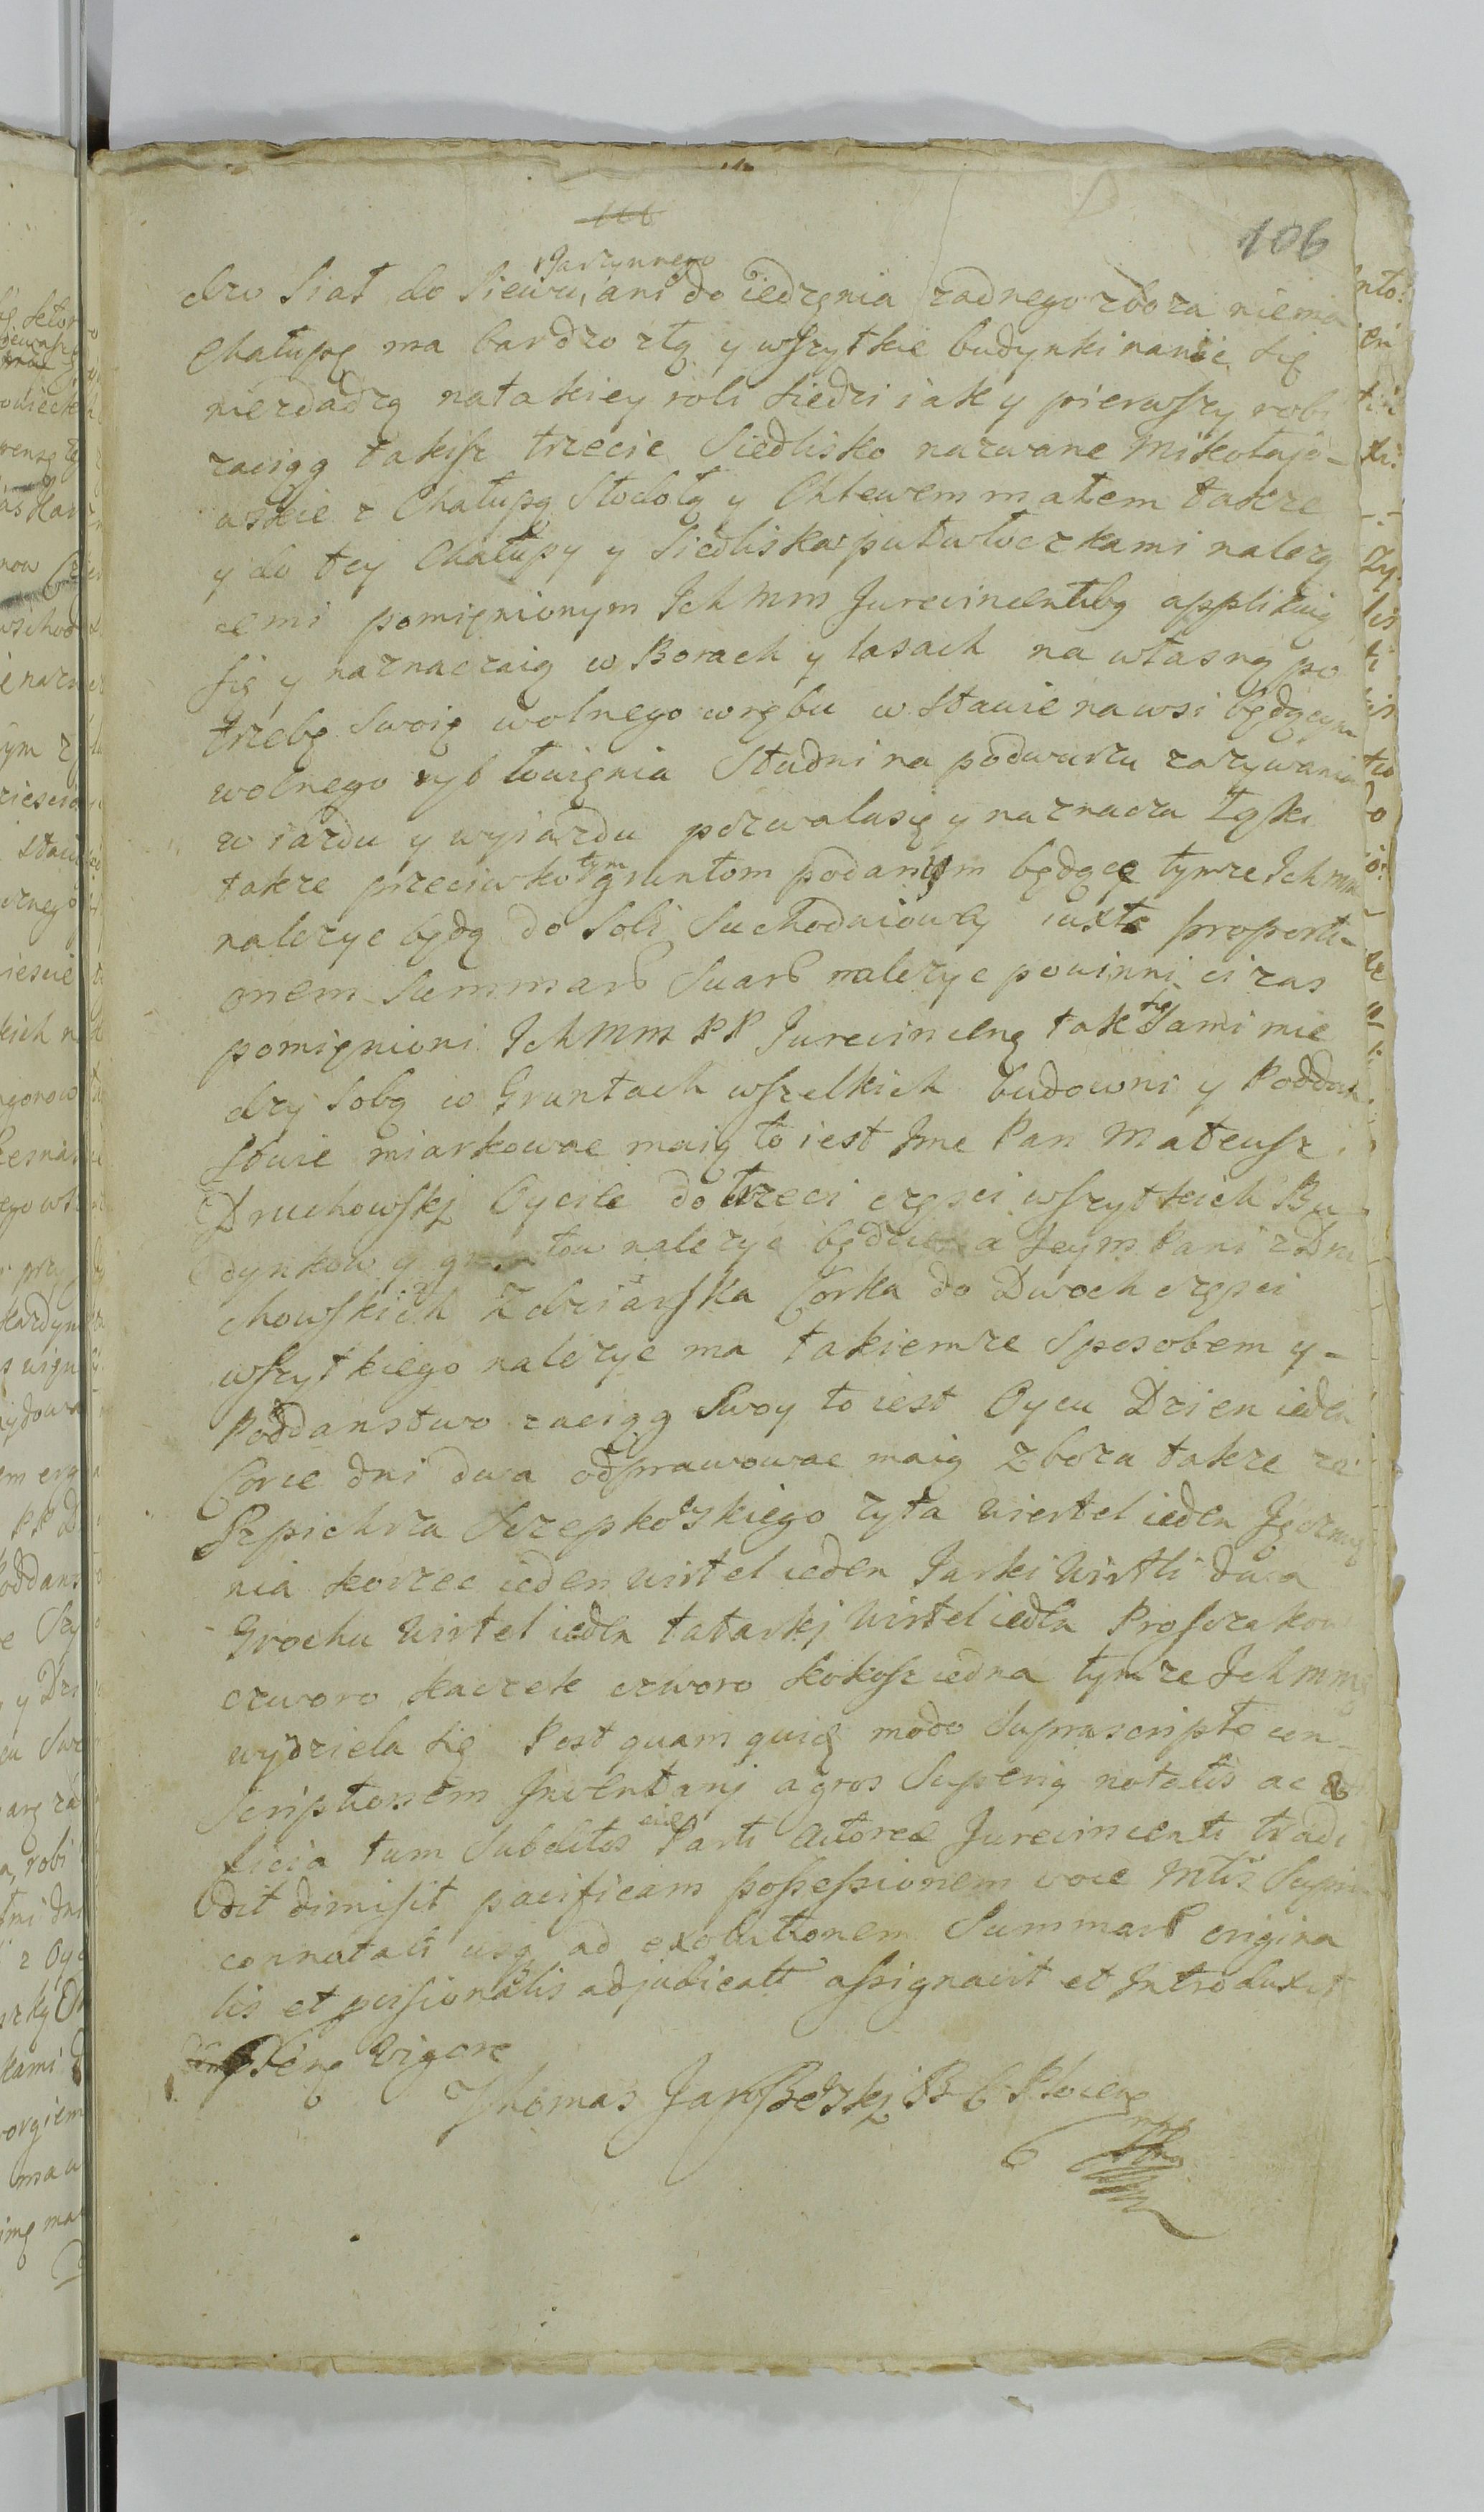 106
Jarzynnego
dzo Siał do Siewu, ani do iedzęnia zadnego zboza niema
Chałupę ma bardzo złą y wszytkie budynki nanic się
niezdadzą natakiey roli siedzi iak y pierwszy robi
zaciąg takisz trzecie Siedlisko nazwane Mikołaio-
wskie z Chałupą Stodołą y Chlewem małem takze
y do tey Chałupy y Siedliska putwłoczkami nalezą
cemi pomięnionym Ich Mm Jurevincentibg applikuią
się y naznaczaią w Borach y lasach na własną po
trzebę Swoię wolnego wrębu w Stawie nawsi będącym
wolnego ryb łowięnia Studni na podwurzu zazywania
wiazdu y wyiazdu pozwalasię y naznacza Łąski
takze przeciwko tym gruntom podanym będące tymze Ich mm
nalezyc będą do Soli Suchodniowey iuxta proporti-
onem Summarū Suarū nalezyc powinni ci zas
pomięnioni Ich Mm PP Jurevincenę tak się Sami mie
dzy Sobą w Gruntach wszelkich budowni y Poddan
stwie miarkowac maią to iest Jme Pan Mateusz
Druchowskj Oyciec do trzeci częsci wszytkich Bu-
dynkow y gruntow nalezyc będzie a Jeym Pani z Dru
chowskich Zdziarska Corka do Dwoch częsci
wszytkiego nalezyc ma takiemze Sposobem y-
Poddanstwo zaciąg Swoy to iest Oycu Dzien ieden
Corce dni dwa odprawowac maią Zboza takze ze
Szpichrza Szczepkowskiego zyta wiertel ieden Jęczmię
nia korzec ieden wirtel ieden Jarki Wirtli dwa
Grochu Wirtel ieden tatarkj Wirtel ieden Prosszakow
czworo kaczek czworo kokosz iedna tymze Ich mm
wydziela się Post quam quidę modo Suprascripto con-
scriptionem Inventarij agros Superig notatis ac
ficia tum Subditos eide Parti Actorea Jurevincenti tradi
dit dimisit pacificam possessionem voce Mtis Supra
connotati usq ad exolutionem Summarū origina
lis et pensionalis adjudicati assignavit et Introduxit
Ptiū Vigore
Thomas Jarossewskj B G Plocens
mpp